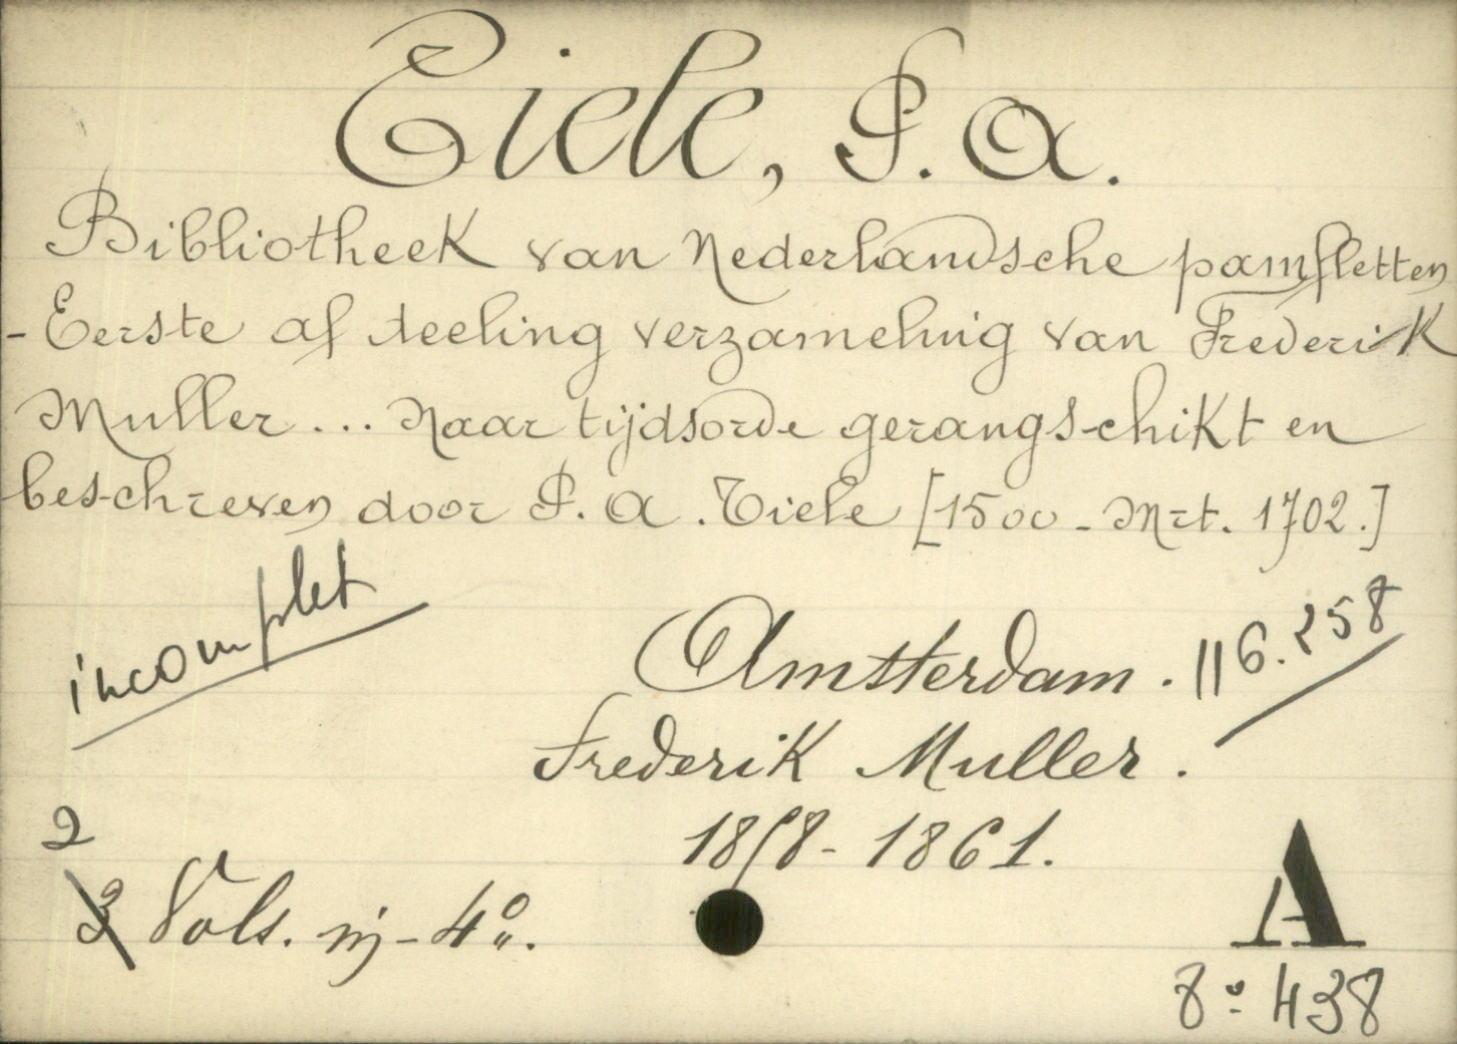 Tiele, P. A.
Bibliotheek van Nederlandsche pamfletten
- Eerste afdeeling verzameling van Frederik
Muller ... Naar tijdsorde gerangschikt en
beschreven door P. A. Tiele [1500 - Mrt. 1702.]
incomplet
Amsterdam. 116.258
Frederik Muller.
1858 - 1861.
2
3 Vols. in-4º.
A
8º 438